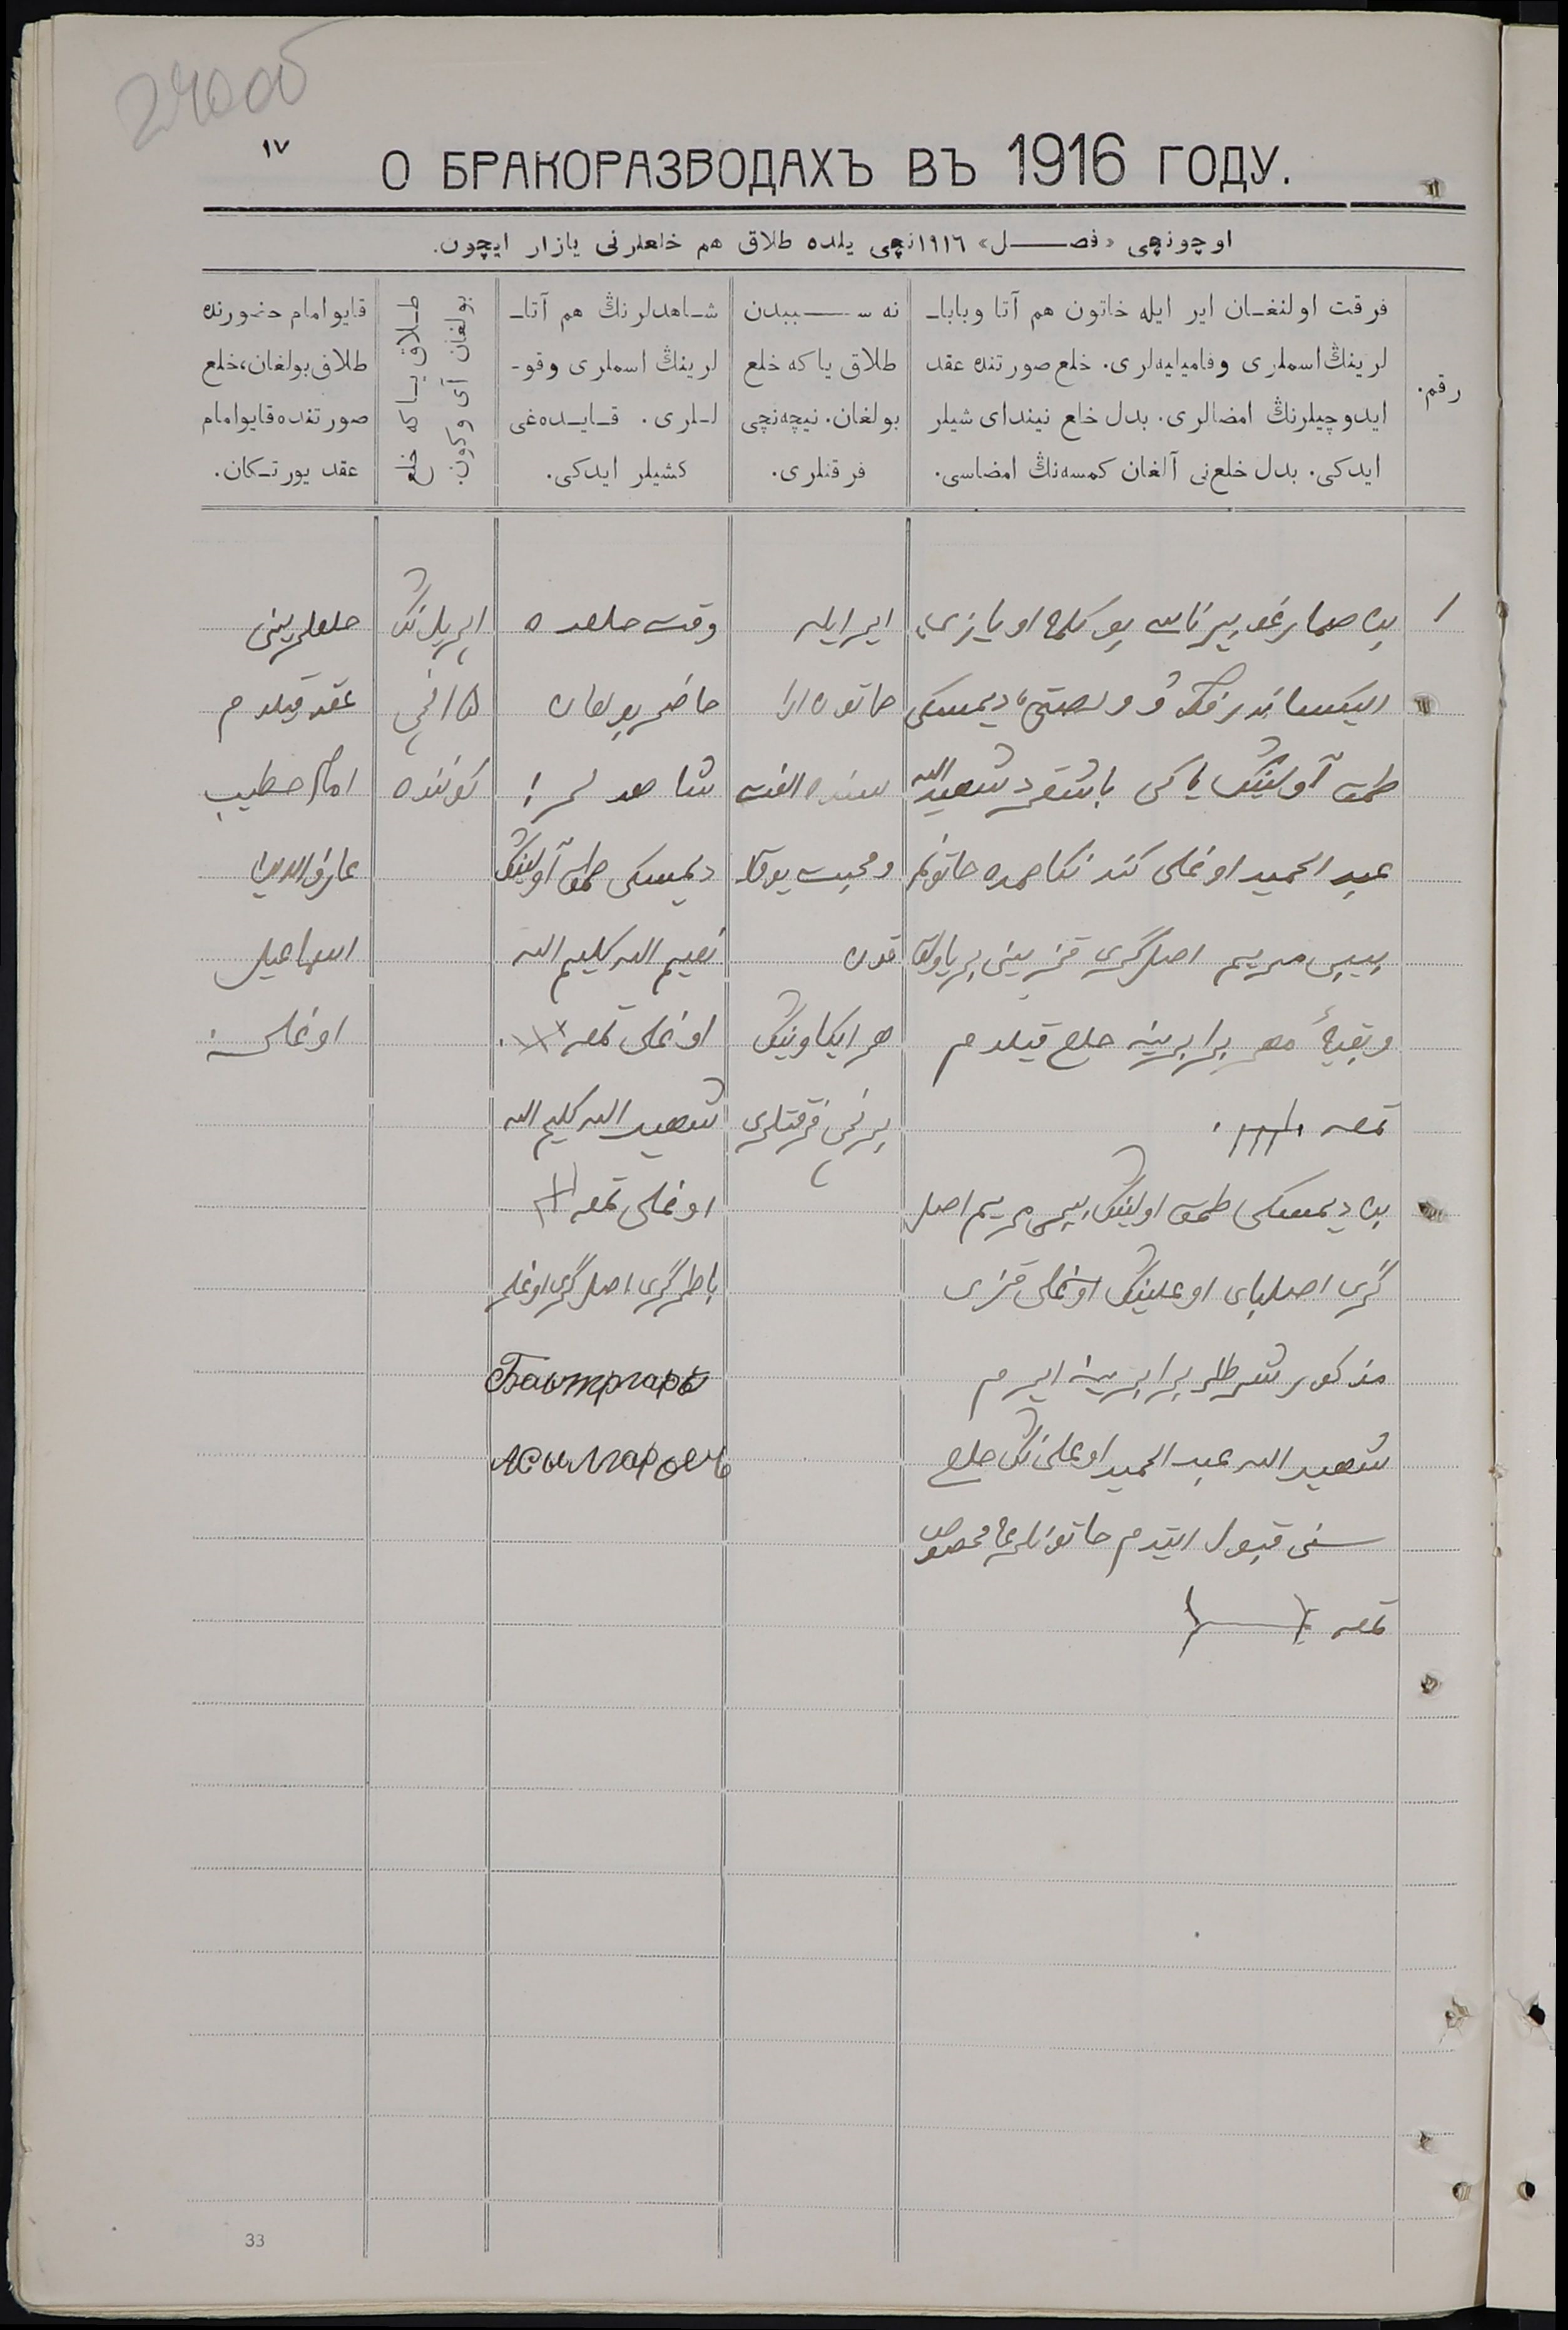 240об
١٧
О БРАКОРАЗВОДАХЪ ВЪ 1916 ГОДУ.
اوچونچی «فصل» ١٩١٦نچی یلده طلاق هم خلعلرنی یازار ایچون.
رقم.
فرقت اولنغان ایر ایله خاتون هم آتا وبابا-
لرینڭ اسملری وفامیلیه‌لری. خلع صورتنده عقد
ایدوچیلرنڭ امضالری. بدل خلع نیندای شیلر
ایدکی. بدل خلع‌نی آلغان کمسه‌نڭ امضاسی.
نه سببدن
طلاق یا که خلع
بولغان. نیچه‌نچی
فرقتلری.
شاهدلرنڭ هم آتا-
لرینڭ اسملری وقو-
للری. قایده‌غی
کشیلر ایدکی.
طلاق یا که خلع
بولغان آی وکون.
قایو امام حضورنده
طلاق بولغان، خلع
صورتنده قایو امام
عقد یورتکان.
١
من صمار غوبیرناسی بوکلمه اویازی
دیمسکی
طمق آولینڭ یاکی باشقرد شهیدالله
عبد الحمید اوغلی کند نکاحمده خاتونم
بیبی مریم اصلگری قزینی
وبقیهٔ مهر برابرینه خلع قیلدم
تمغه
من دیمسکی طمق اولینڭ بیبی مریم اصل
گری اصلبای اوغلینڭ اوغلی قزی
مذکور شرطلر برابرینه ایرم
شهید الله عبد الحمید اوغلی نڭ خلع
سنی قبول ایتدم خاتونلرغه مخصوص
تمغه
ایر ایله
خاتون ارا
سنده الفت
ومحبت یوقلا
قدن
هر ایکاوینڭ
برنچی فرقتلری
وقت خلعده
حاضر بولغان
شاهدلر:
دیمسکی طمق آولینڭ
نعیم الله کلیم الله
اوغلی تمغه
شهید الله کلیم الله
اوغلی تمغه
باطرگری اصلگری اوغلی
Баытргарѣ
Асылгаровъ
اپریل نڭ
١٥ نچی
کوننده
خلعلرینی
عقد قیلدم
امام خطیب
عارف الدین
اسماعیل
اوغلی
33